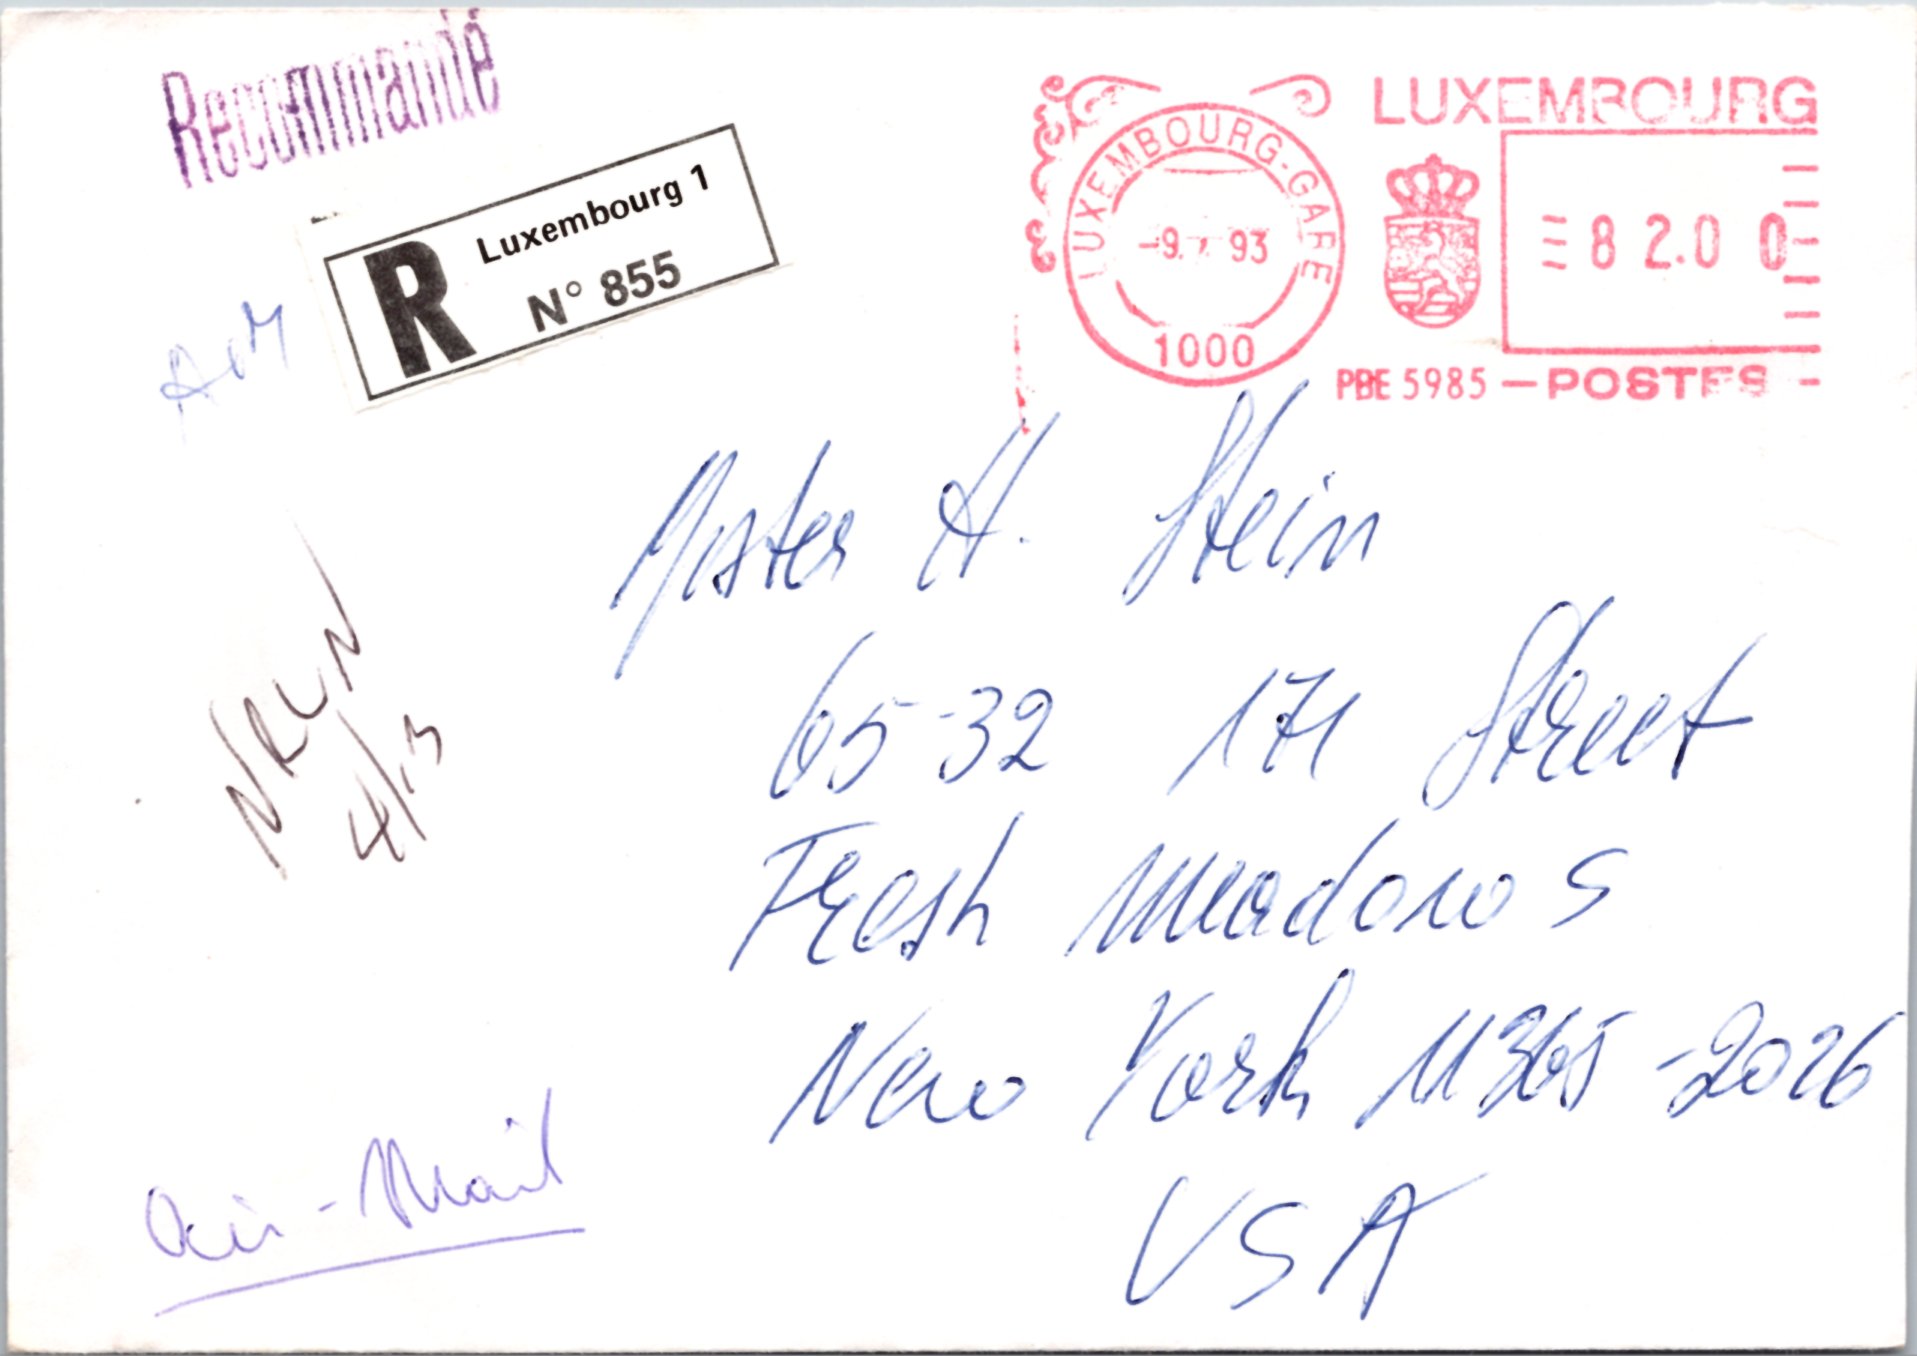 Recommandé
R Luxembourg 1
N° 855
LUXEMBOURG-GARE
-9. 93
1000
LUXEMBOURG
82.00
PBE 5985 - POSTES -
Mister H. Stein
65-32 171 Street
Fresh Meadows
New York 11365-2026
USA
4/13
Air-Mail